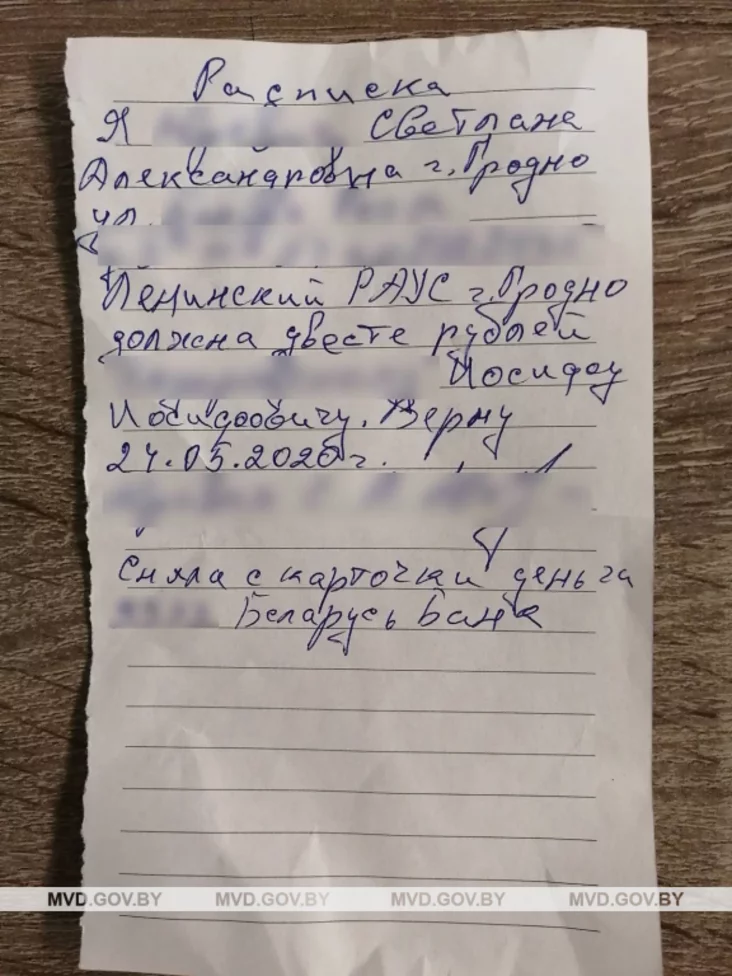 Расписка
Я Светлана
Александровна г. Гродно
ул.
Ленинский РАУС г. Гродно
должна двесте рублей
Иосифу
Иосифовичу. Верну
24.05.2020 г.
Сняла с карточки деньга
Беларусь банк
MVD.GOV.BY MVD.GOV.BY MVD.GOV.BY MVD.GOV.BY